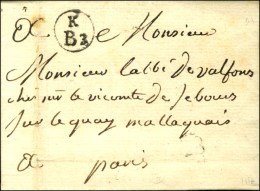 A Monsieur
K
B3
Monsieur labbé de valfons
chez mr le vicomte de
sur le quay mallaquais
A paris